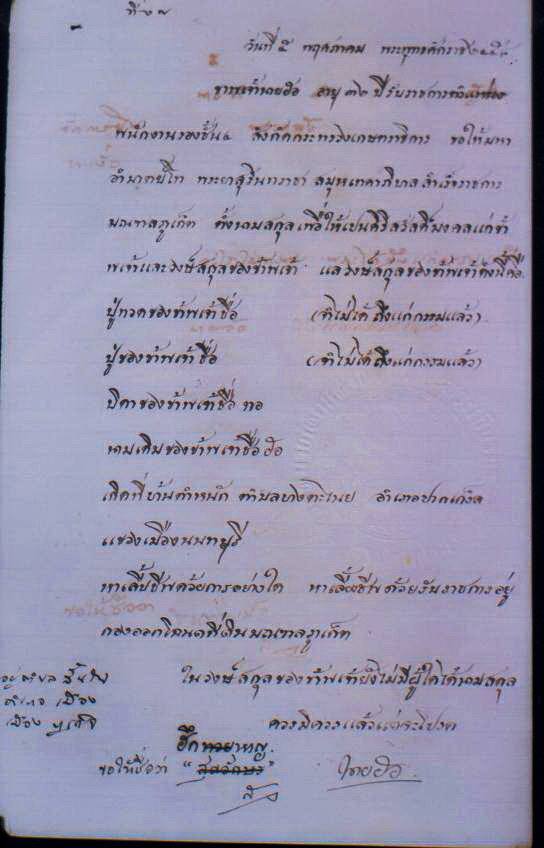 ที่ ๖๗
วันที่ ๕ พฤศภาคม พระพุทธศักราช ๒๔๕๘
ข้าพเจ้านายฮ้อ อายุ ๓๖ ปี รับราชการตำแหน่ง
พนักงานรองชั้น ๔ สังกัดกระทรวงเกษตราธิการ ขอให้มหา
อำมาตย์โท พระยาสุรินทราชา สมุหเทศาภิบาลสำเร็จราชการ
มณฑลภูเก็ต ตั้งนามสกุลเพื่อให้เปนศิริสวัสดิ์มงคลแก่ข้า
พเจ้าและวงษ์สกุลของข้าพเจ้า แลวงษ์สกุลของข้าพเจ้าดังนี้คือ
ปู่ทวดของข้าพเจ้าชื่อ (จำไม่ได้ถึงแก่กรรมแล้ว)
ปู่ของข้าพเจ้าชื่อ (จำไม่ได้ถึงแก่กรรมแล้ว)
บิดาของข้าพเจ้าชื่อ ทอ
นามเดิมของข้าพเจ้าชื่อ ฮ้อ
เกิดที่บ้านตำหนัก ตำบลบางตะไนย อำเภอปากเกร็ด
แขวงเมืองนนทบุรี
หาเลี้ยงชีพด้วยการอย่างใด หาเลี้ยงชีพด้วยรับราชการอยู่
กองออกโฉนดที่ดินมณฑลภูเก็ต
ในวงษ์สกุลของข้าพเจ้ายังไม่มีผู้ใดได้นามสกุล
ควรมิควรแล้วแต่จะโปรด
อำเภอ เมือง
เมือง ภูเก็จ
ขอให้ชื่อว่า นายฮ้อ